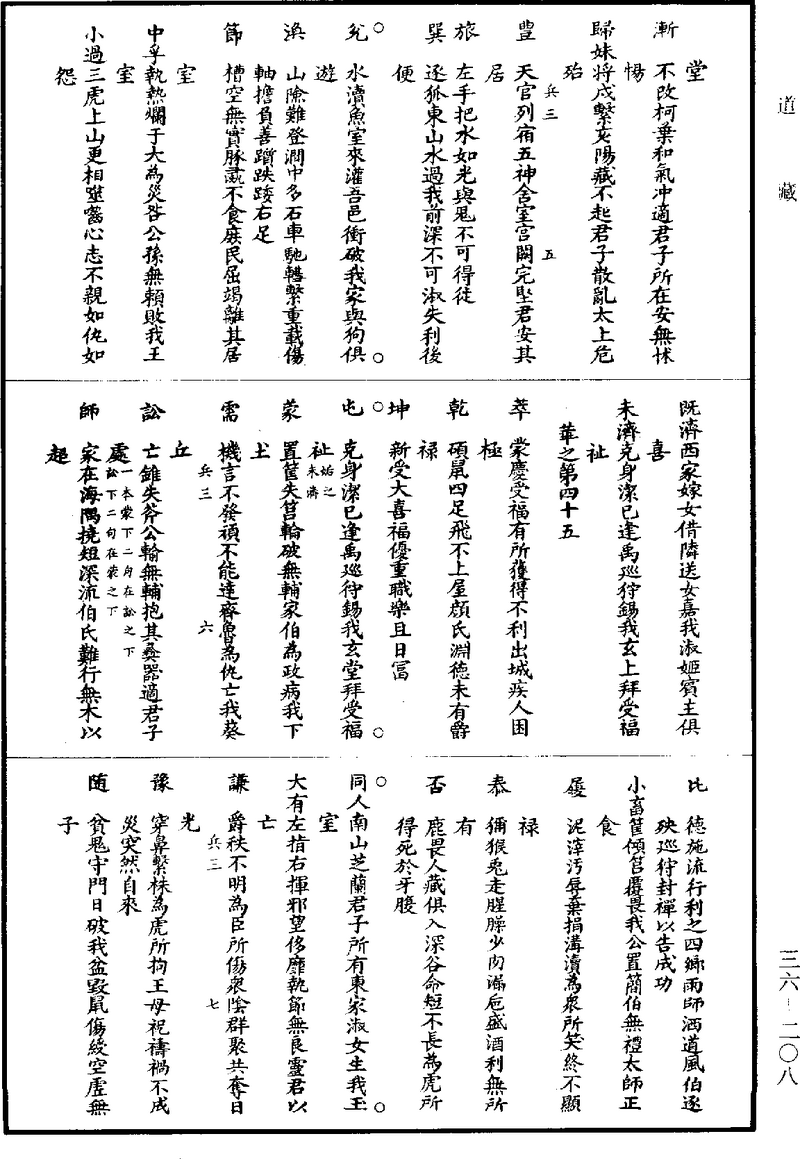 道藏
堂
漸　不改柯葉和氣冲適君子所在安無怵
惕
歸妹將戍繫亥陽藏不起君子散亂太上危
殆
兵三　五
豐　天官列宿五神舍室宮闕完堅君安其
居
旅　左手把水如光與鬼不可得徒
巽　逐狐東山水過我前深不可涉失利後
便
兊　水瀆魚室來灌吾邑衝破我家與狗俱
遊
渙　山險難登澗中多石車馳轊擊重載傷
軸擔負善躓跌踒右足
節　槽空無實豚彘不食庶民屈竭離其居
室
中孚執熱爛手大為災咎公孫無賴敗我王
室
小過三虎上山更相噬囓心志不親如仇如
怨
既濟西家嫁女借隣送女嘉我淑姬賓主俱
喜
未濟克身潔己逢禹巡狩錫我玄上拜受福
祉
萃之第四十五
萃　蒙慶受福有所獲得不利出城疾人困
極
乾　碩鼠四足飛不上屋顏氏淵德未有爵
禄
坤　新受大喜福優重職樂且日富
屯　克身潔已逢禹巡狩錫我玄堂拜受福
祉姤之未濟
蒙　置筐失筥輪破無輔家伯為政病我下
土
兵三　六
需　機言不發頑不能達齊魯為仇亡我葵
丘
訟　亡錐失斧公輸無輔抱其彝器適君子
處一本蒙下二句在訟之下訟下二句在蒙之下
師　家在海隅撓短深流伯氏難行無木以
趍
比　德施流行利之四鄉雨師洒道風伯逐
殃巡狩封禪以告成功
小畜筐傾筥覆畏我公置簡伯無禮太師正
食
履　泥滓污辱棄捐溝瀆為衆所笑終不顯
禄
泰　獼猴兎走腥臊少肉滿巵盛酒利無所
有
否　鹿畏人藏俱入深谷命短不長為虎所
得死於牙腹
同人南山芝蘭君子所有東家淑女生我玉
室
大有左指右揮邪望侈靡執節無良靈君以
亡
兵三　七
謙　爵秩不明為臣所傷衆陰群聚共奪日
光
豫　穿鼻繫株為虎所拘王母祝禱禍不成
災突然自來
随　貧鬼守門日破我盆毀罌傷綆空虛無
子
三六－二〇八